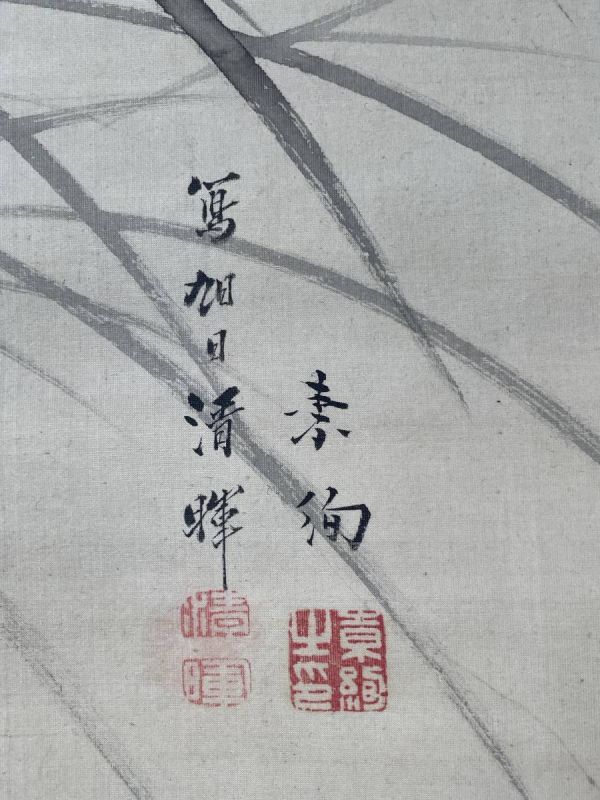 素絢
寫旭日清暉
素絢之印
清暉